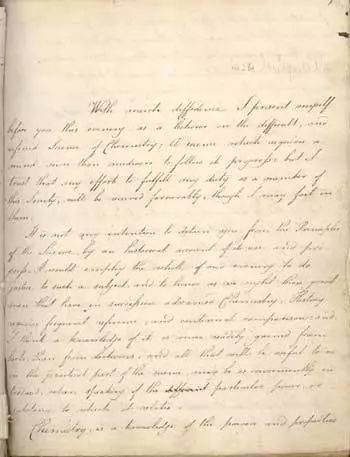 With much diffidence I present myself
before you this evening as a lecturer on the difficult, and
refined Science of Chemistry; A science which requires a
mind more than mediocre to follow its progress: but I
trust that my effort to fulfill my duty as a member of
this Society, will be viewed favourably, though I may fail in
them.
It is not my intention to detain you from the Principles
of the Science by an historical account of its rise and pro
gress. I would employ the whole of our evening to do
justice to such a subject, and to know as we ought those great
men that have in succession advanced Chemistry. History
requires frequent reference, and continual comparison, and
I think a knowledge of it is more readily gained from
books than from lectures, and all that will be useful to us
in the practical part of the science, may be as conveniently in
troduced, when speaking of the particular power, or
substance to which it relates.
Chemistry, is a knowledge of the powers and properties